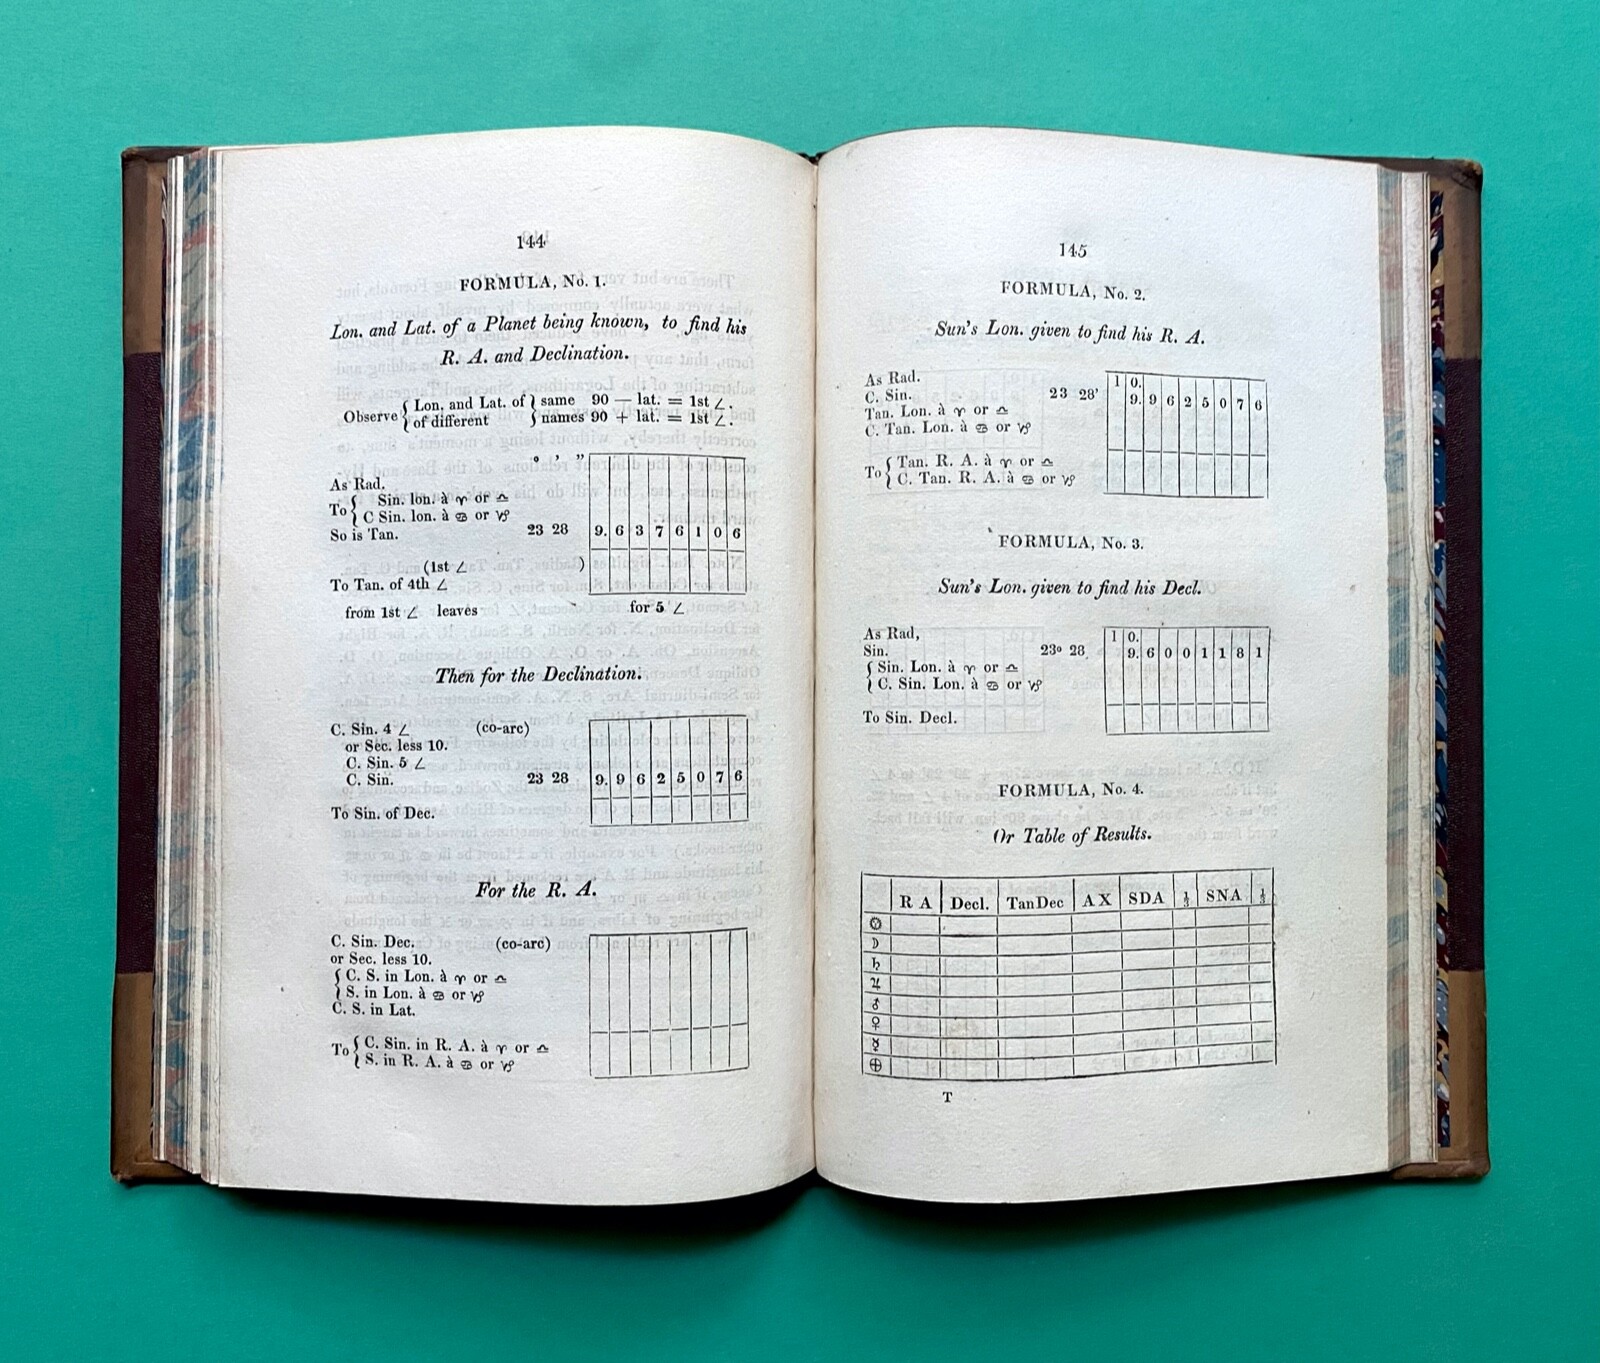 144
FORMULA, No. 1.
Lon. and Lat. of a Planet being known, to find his
R. A. and Declination.
Observe { Lon. and Lat. of } same 90 — lat. = 1st ∠.
{ of different } names 90 + lat. = 1st ∠.
° ′ ″
As Rad.
To { Sin. lon. à ♈ or ♎
{ C Sin. lon. à ♋ or ♑
So is Tan. 23 28 9. 6 3 7 6 1 0 6
(1st ∠ )
To Tan. of 4th ∠
from 1st ∠ leaves for 5 ∠
Then for the Declination.
C. Sin. 4 ∠ (co-arc)
or Sec. less 10.
C. Sin. 5 ∠
C. Sin. 23 28 9. 9 6 2 5 0 7 6
To Sin. of Dec.
For the R. A.
C. Sin. Dec. (co-arc)
or Sec. less 10.
{ C. S. in Lon. à ♈ or ♎
{ S. in Lon. à ♋ or ♑
C. S. in Lat.
To { C. Sin. in R. A. à ♈ or ♎
{ S. in R. A. à ♋ or ♑
145
FORMULA, No. 2.
Sun's Lon. given to find his R. A.
As Rad. 1 0.
C. Sin. 23 28' 9. 9 6 2 5 0 7 6
Tan. Lon. à ♈ or ♎
C. Tan. Lon. à ♋ or ♑
To { Tan. R. A. à ♈ or ♎
{ C. Tan. R. A. à ♋ or ♑
FORMULA, No. 3.
Sun's Lon. given to find his Decl.
As Rad, 1 0.
Sin. 23° 28 9. 6 0 0 1 1 8 1
{ Sin. Lon. à ♈ or ♎
{ C. Sin. Lon. à ♋ or ♑
To Sin. Decl.
FORMULA, No. 4.
Or Table of Results.
R A Decl. TanDec A X SDA ⅓ SNA ⅓
☉
☽
♄
♃
♂
♀
☿
⊕
T